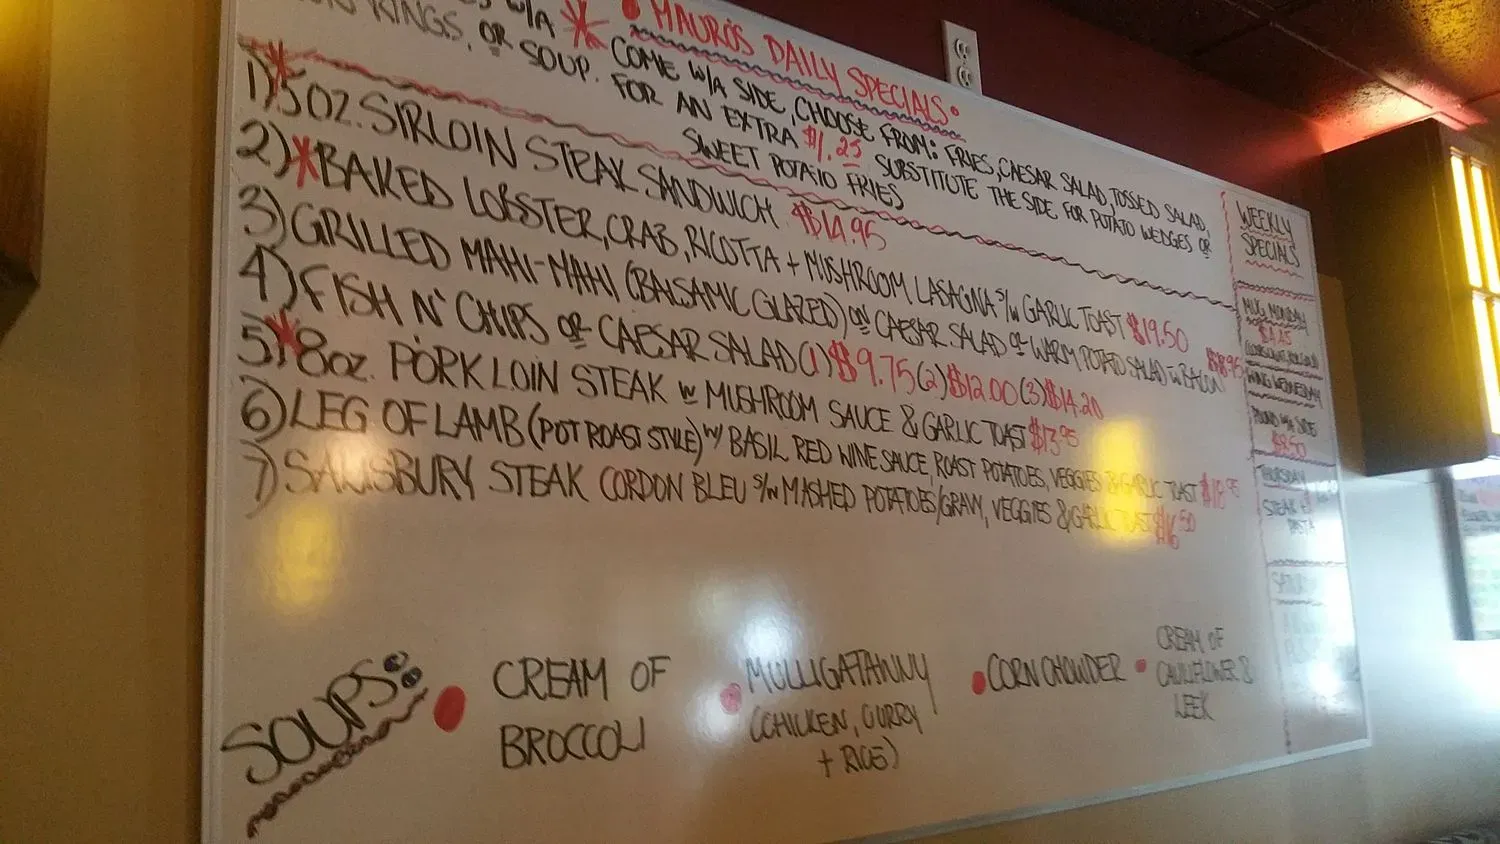 • MAURO'S DAILY SPECIALS •
W/A * COME W/A SIDE, CHOOSE FROM: FRIES, CAESAR SALAD, TOSSED SALAD,
RINGS, OR SOUP. FOR AN EXTRA $1.25 SUBSTITUTE THE SIDE FOR POTATO WEDGES OR
SWEET POTATO FRIES
1)* 5OZ. SIRLOIN STEAK SANDWICH $14.95
2)* BAKED LOBSTER, CRAB, RICOTTA + MUSHROOM LASAGNA S/W GARLIC TOAST $19.50
3) GRILLED MAHI-MAHI (BALSAMIC GLAZED) ON CAESAR SALAD OR WARM POTATO SALAD W BACON
4) FISH N' CHIPS OR CAESAR SALAD (1) $9.75 (2) $12.00 (3) $14.20
5)* 8oz. PORK LOIN STEAK W MUSHROOM SAUCE & GARLIC TOAST $13.95
6) LEG OF LAMB (POT ROAST STYLE) W/ BASIL RED WINE SAUCE, ROAST POTATOES, VEGGIES & GARLIC TOAST $18.95
7) SALISBURY STEAK CORDON BLEU S/W MASHED POTATOES/GRAVY, VEGGIES & GARLIC TOAST $16.50
SOUPS:
• CREAM OF
BROCCOLI
• MULLIGATAWNY
(CHICKEN, CURRY
+ RICE)
• CORN CHOWDER
• CREAM OF
CAULIFLOWER &
LEEK
WEEKLY
SPECIALS
MUG MONDAY
$4.45
WING WEDNESDAY
POUND W/A SIDE
$8.50
THURSDAY
STEAK +
PASTA